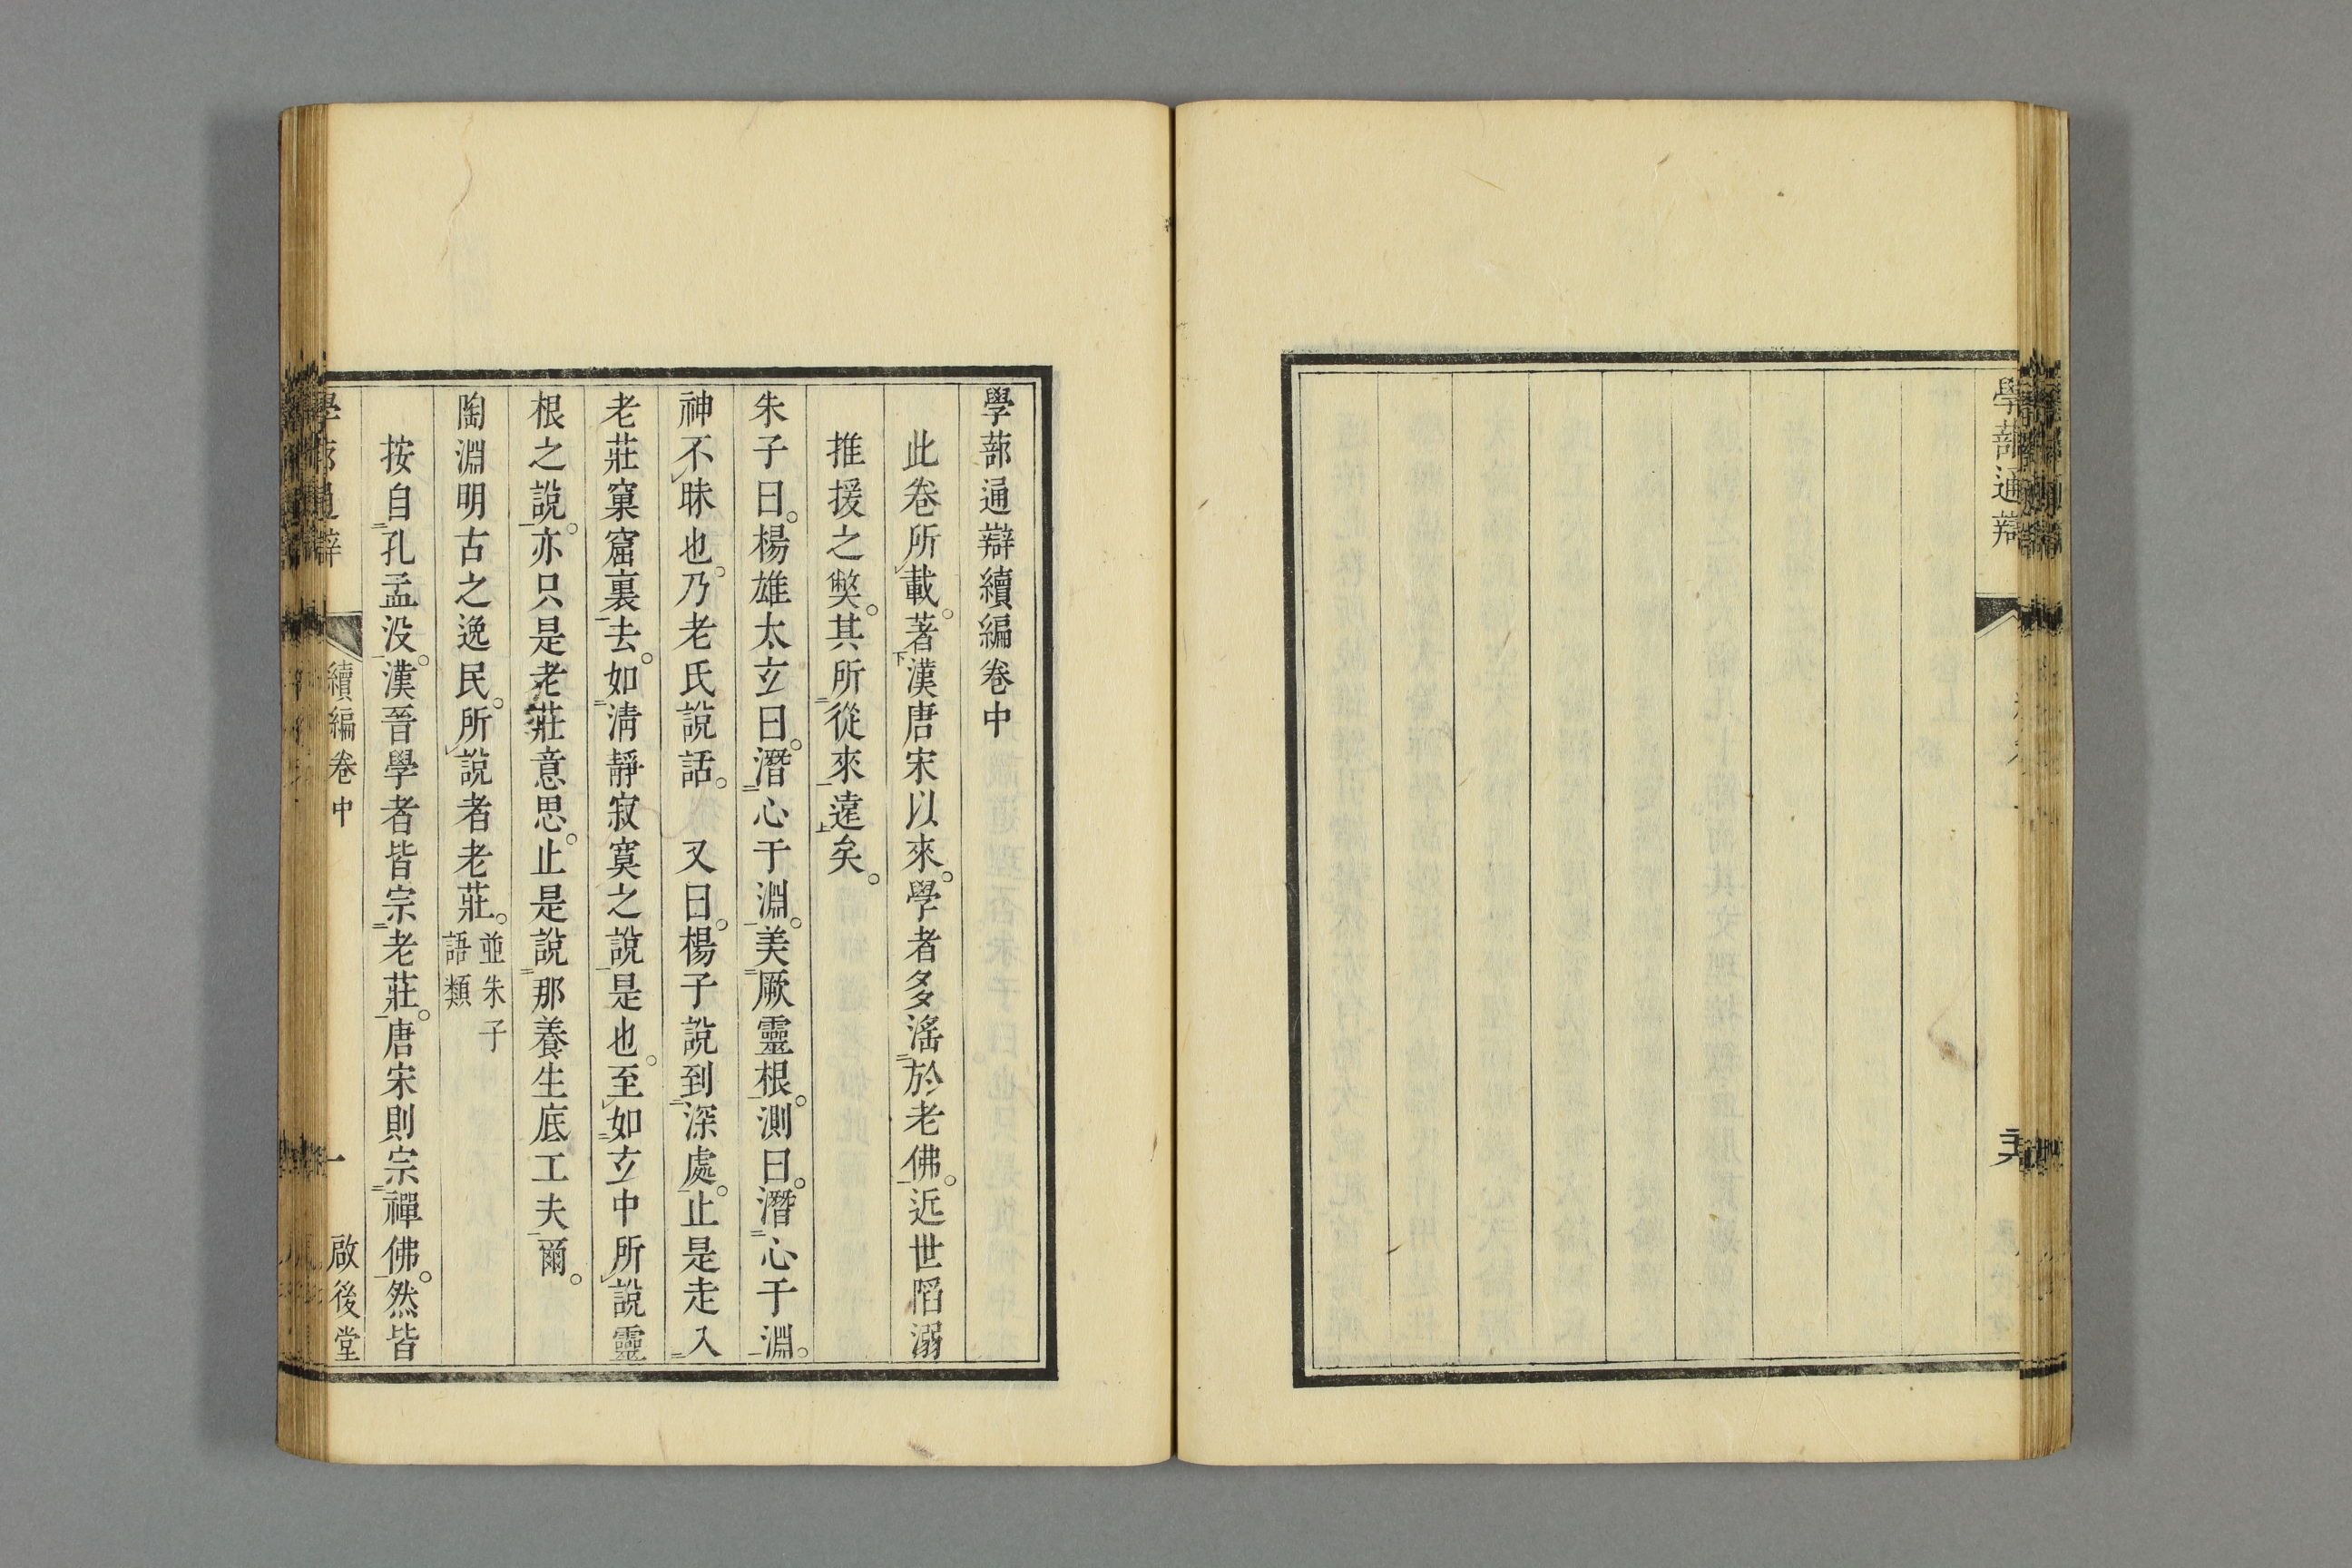 學蔀通辯
學蔀通辯續編卷中
此卷所載。著漢唐宋以來。學者多滛於老佛。近世䧟溺
推援之弊。其所從來遠矣。
朱子曰。楊雄太玄曰。潛心于淵。美厥靈根。測曰。潛心于淵。
神不昧也。乃老氏說話。 又曰。楊子說到深處。止是走入
老莊窠窟裏去。如淸靜寂寞之說是也。至如玄中所說靈
根之說。亦只是老莊意思。止是說那養生底工夫爾。
陶淵明古之逸民。所說者老莊。並朱子語類
按自孔孟没。漢晉學者皆宗老莊。唐宋則宗禪佛。然皆
續編卷中 一 啟後堂